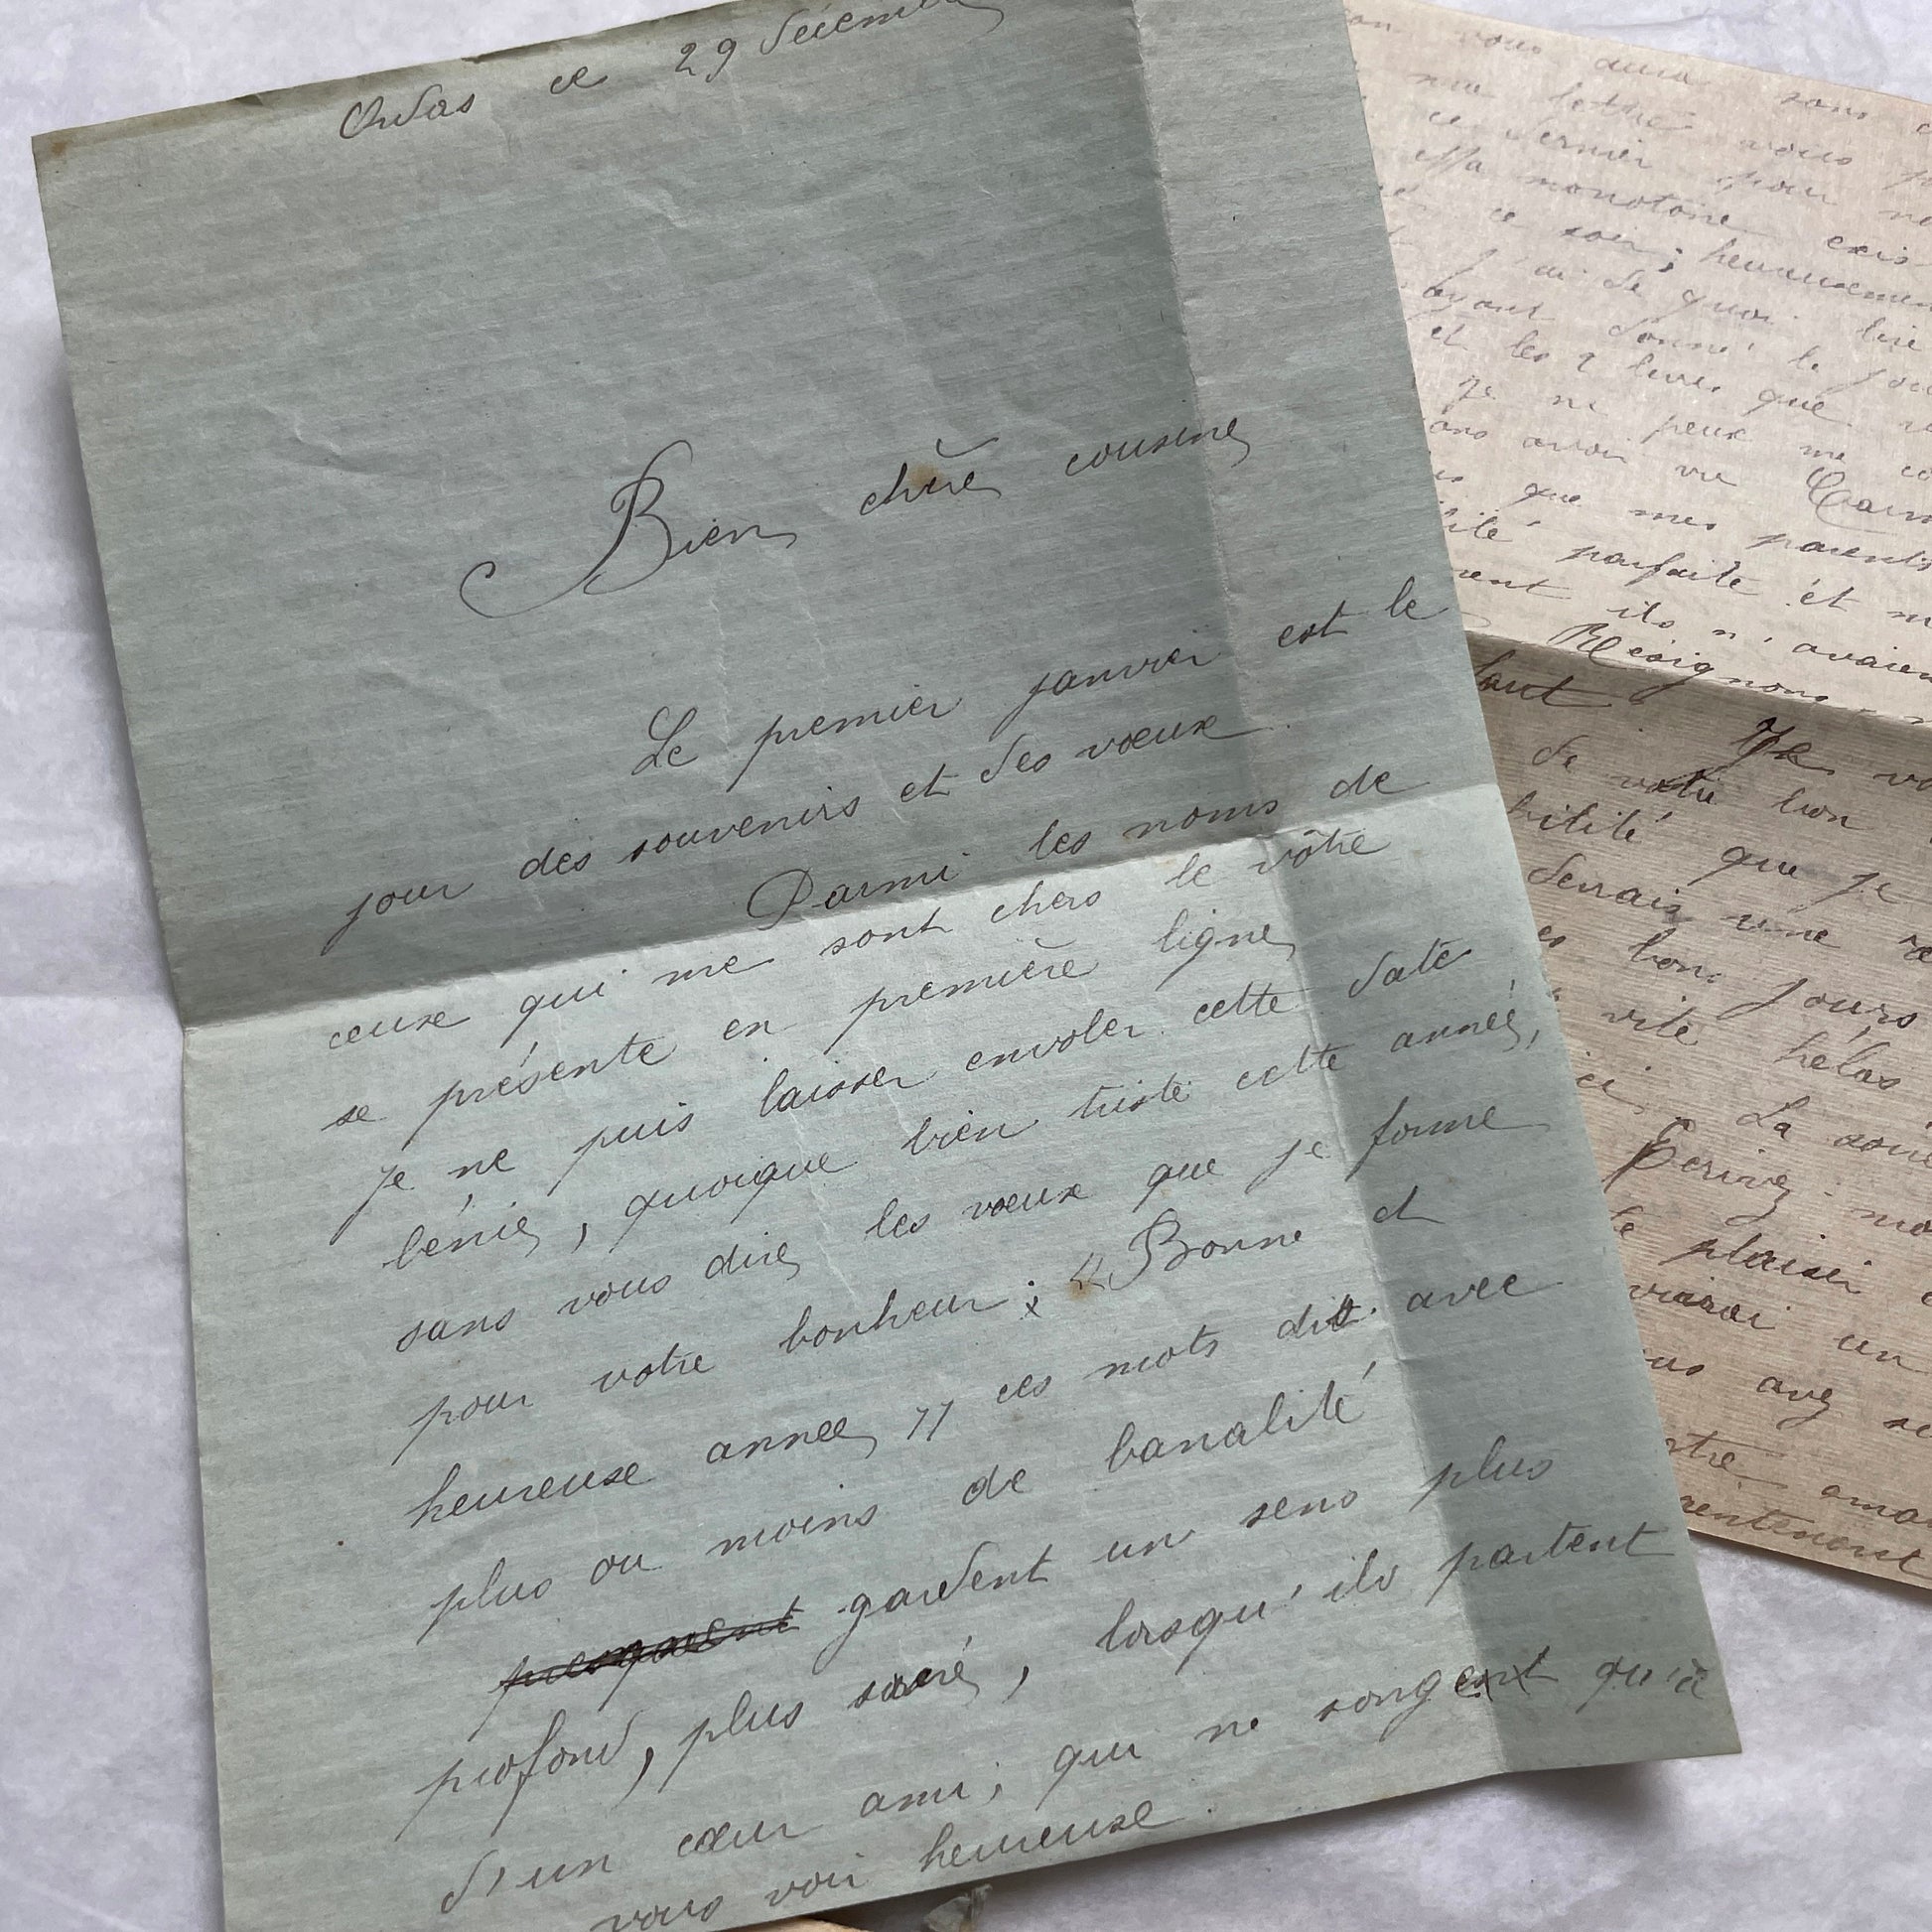 Ordas ce 29 Décem
Bien chère cousine
Le premier janvier est le
jour des souvenirs et des vœux.
Parmi les noms de
ceux qui me sont chers le vôtre
se présente en première ligne
je ne puis laisser envoler cette date
bénie, quoique bien triste cette année,
sans vous dire les vœux que je forme
pour votre bonheur ; " Bonne et
heureuse année " ces mots dit avec
plus ou moins de banalité
gardent un sens plus
profond, plus sacré, lorsqu'ils partent
d'un cœur ami, qui ne songent qu'à
vous voir heureuse.
vous aura sans
ma lettre vous
ce dernier pour
Ma monotone exis
ce soir ; heureusemen
j'ai de quoi lire
ayant donné le jou
et les 2 livres que
je ne peux me
avoir vu
que mes parents
parfaite et
ils n'avaien
Résignons
faut
Je
de votre bon
que je
devrais une
bon jours
vite hélas
La
Ecrivez
le plaisir
un
avez